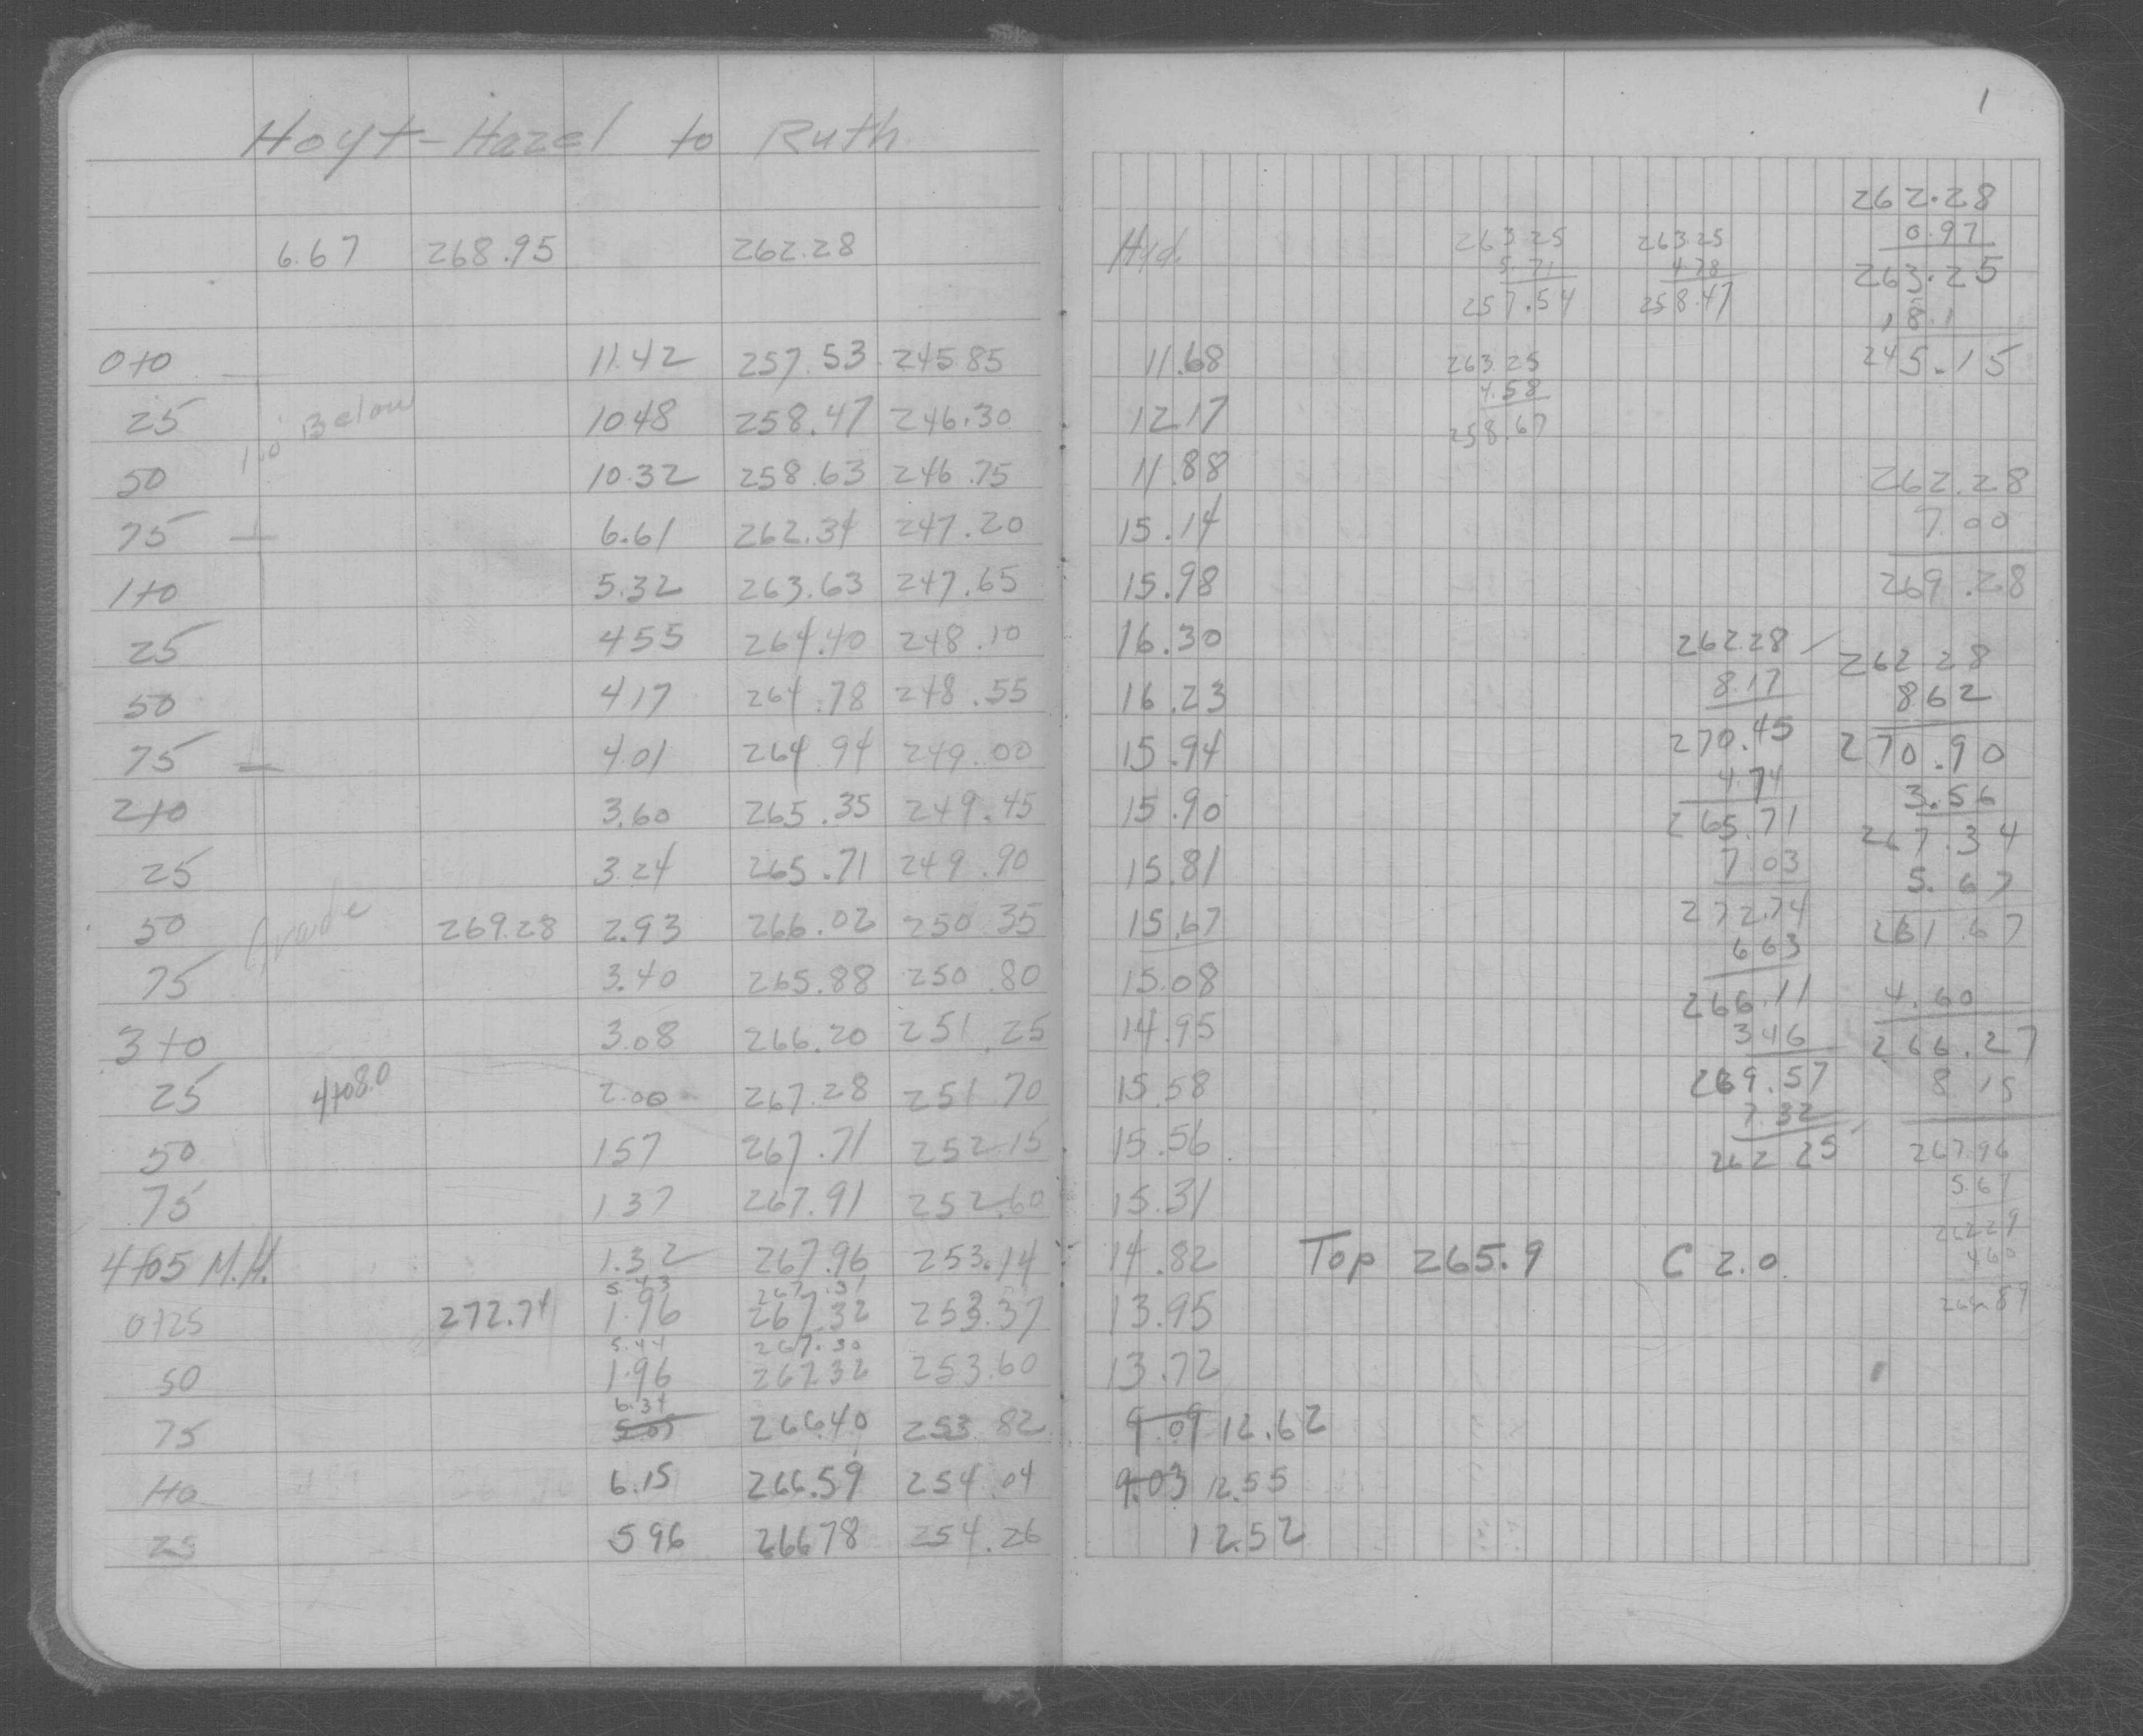 1
Hoyt-Hazel to Ruth
6.67 268.95 262.28 Hyd.
0+0 11.42 257.53 245.85 11.68
25 1.0' Below 1048 258.47 246.30 12.17
50 10.32 258.63 246.75 11.88
75 6.61 262.34 247.20 15.14
1+0 5.32 263.63 247.65 15.98
25 455 264.40 248.10 16.30
50 417 264.78 248.55 16.23
75 4.01 264.94 249.00 15.94
2+0 3.60 265.35 249.45 15.90
25 3.24 265.71 249.90 15.81
50 Grade 269.28 2.93 266.02 250 35 15.67
75 3.40 265.88 250 80 15.08
3+0 3.08 266.20 251.25 14.95
25 4+08.0 2.00 267.28 251 70 15.58
50 157 267.71 252.15 15.56
75 1.37 267.91 252.60 15.31
4+05 M.H. 1.32 267.96 253.14 14.82 Top 265.9 C 2.0
5.43 267.31
0+25 272.74 1.96 267.32 253.37 13.95
5.44 267.30
50 1.96 26732 253.60 13.72
6.34
75 266.40 253.82 9.09 12.62
1+0 6.15 266.59 254.04 9.03 12.55
25 596 26678 254.26 12.52
263 25
5.71
257.54
263 25
4.58
258.67
263 25
4.78
258.47
262.28
0.97
263.25
18.1
245.15
262.28
7.00
269.28
262.28
8.17
270.45
4.74
265.71
7.03
272.74
6 63
266.11
3 46
269.57
7.32
262 25
262 28
8 62
270.90
3.56
267.34
5.67
261.67
4.60
266.27
8 15
267.96
5.67
262.29
4 60